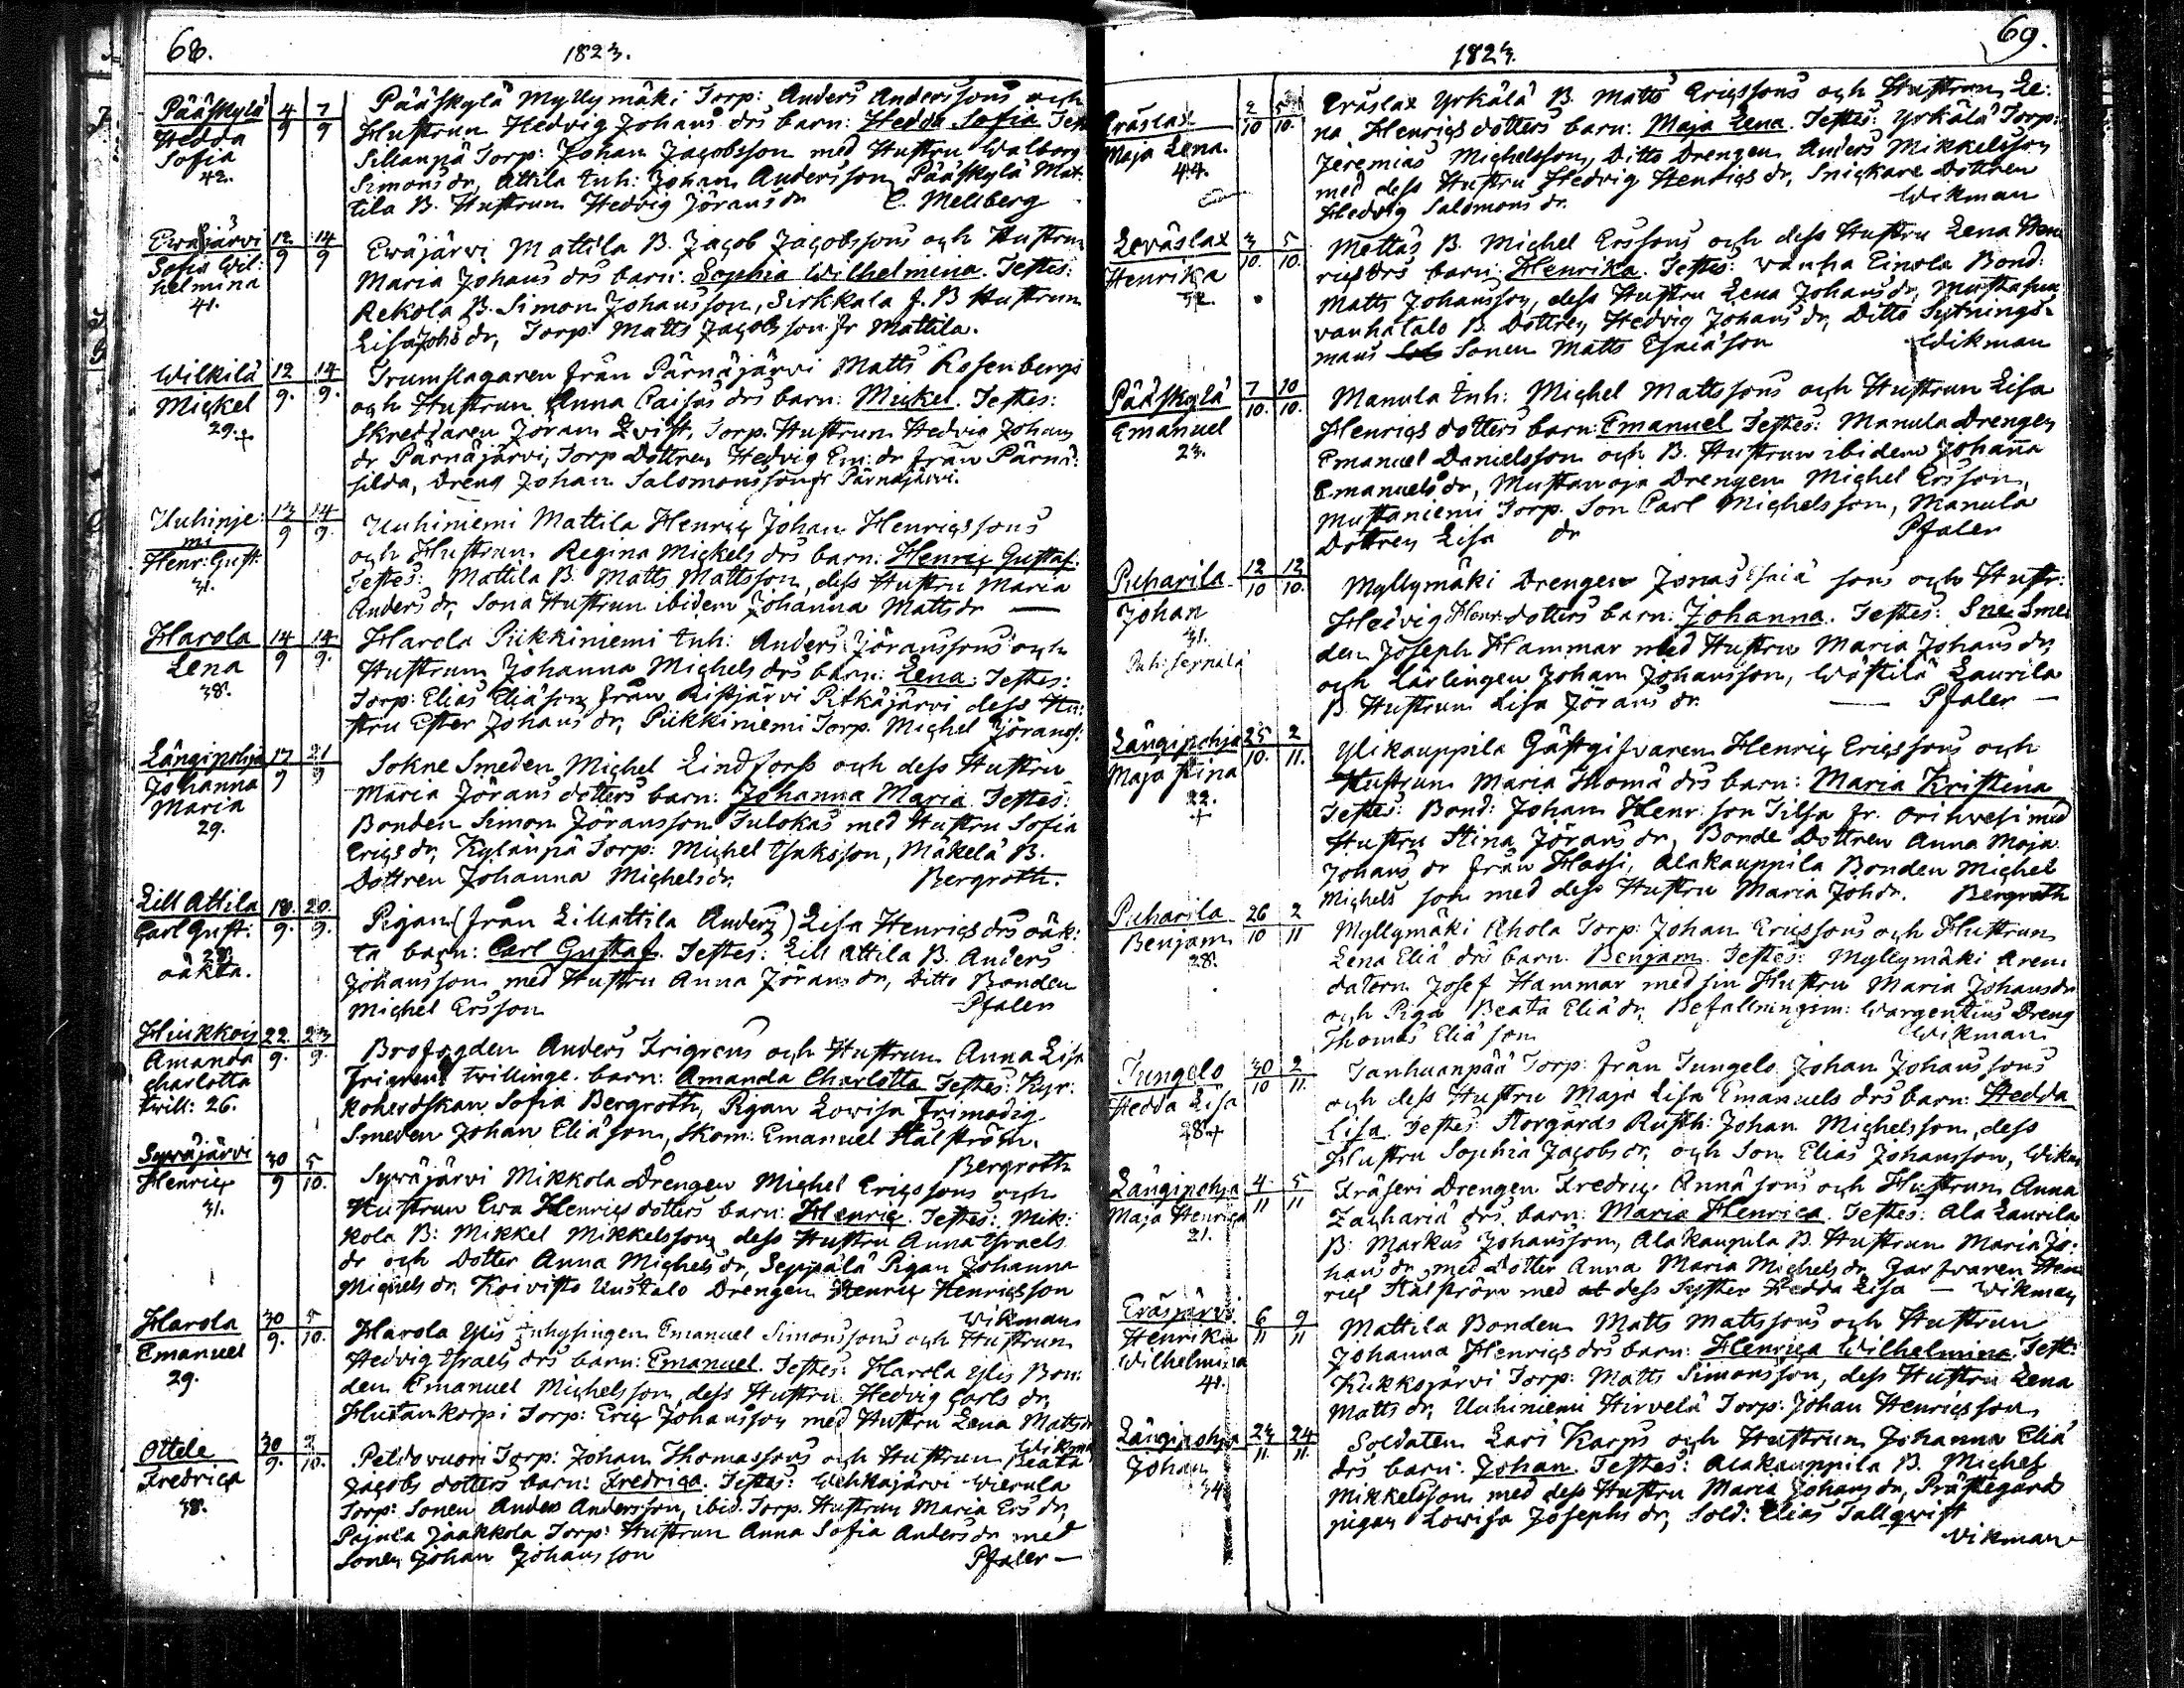 68.
1823.
Pääskylä 4/9 7/9 Pääskylä Myllymäki Torp: Anders Anderssons och
Hedda Hustrun Hedvig Johans drs barn: Hedda Sofia Test
Sofia Sillanpä Torp: Johan Jacobsson med Hustru Walborg
42. Simons dr, Attila Inh: Johan Andersson, Pääskylä Mat-
tila B. Hustrun Hedvig Jörans dr C. Mellberg
Ewäjärvi 12/9 14/9 Ewäjärvi Mattila B. Jacob Jacobssons och Hustrun
Sofia Wil: Maria Johans drs barn: Sophia Wilhelmina. Testes:
helmina Rekola B. Simon Johansson, Sirkkala f. B Hustrun
41. Lisa Johs dr, Torp: Matts Jacobsson fr Mattila.
Wilkilä 12/9. 14/9. Trumslagaren från Pärnäjärvi Matts Rosenbergs
Mickel och Hustrun Anna Caisas drs barn: Mickel. Testes:
29.+ Skreddaren Jöran Qvist, Torp. Hustrun Hedvig Johans
dr Pärnäjärvi, Torp Dottren Hedvig Em: dr från Pärnä-
silda, Dreng Johan Salomonsson fr Pärnäjärvi.
Uuhinie: 13/9 14/9. Uuhiniemi Mattila Henric Johan Henricssons
mi och Hustrun Regina Mickels drs barn: Henric Gustaf:
Henr: Gust: Testes: Mattila B. Matts Mattsson, dess Hustru Maria
31. Anders dr, Sona Hustrun ibidem Johanna Matts dr —
Harola 14/9 14/9. Harola Piikkiniemi Inh: Anders Jöranssons och
Lena Hustrun Johanna Michels drs barn: Lena. Testes:
38. Torp: Elias Eliäson från Ristjärvi Pitkäjärvi dess Hu-
stru Ester Johans dr, Piikkiniemi Torp. Michel Jöranss:
Längipohja 17/9 21/9 Sokne Smeden Michel Lindforss och dess Hustru
Johanna Maria Jörans dotters barn: Johanna Maria. Testes:
Maria Bonden Simon Jöransson Tulokas med Hustru Sofia
29. Erics dr, Kylänpä Torp: Michel Isaksson, Mäkelä B.
Dottren Johanna Michels dr. Bergroth.
Lill Attila 18/9. 20/9. Pigan (från Lillattila Anders) Lisa Henrics drs oäk:
Carl Gust: ta barn: Carl Gustaf. Testes: Lill Attila B. Anders
28. Johansson med Hustru Anna Jörans dr, Ditto Bonden
oäkta. Michel Ersson Pfaler
Hiukkois 22/9. 23/9. Brofogden Anders Frigrens och Hustrun Anna Lisa
Amanda Frigrens twillinge barn: Amanda Charlotta Testes: Kyr:
Charlotta koherdskan Sofia Bergroth, Pigan Lowisa Frimodig
twill: 26. Smeden Johan Eliäson, Skom: Emanuel Stålström.
Bergroth
Syväjärvi 30/9 5/10. Syväjärvi Mikkola Drengen Michel Ericssons och
Henric Hustrun Ewa Henrics dotters barn: Henric. Testes: Mik:
31. kola B: Mikkel Mikkelsson, dess Hustru Anna Israels
dr och Dotter Anna Michels dr, Seppälä Pigan Johanna
Michels dr, Koivisto Uustalo Drengen Henric Henricsson
Wikman
Harola 30/9. 5/10. Harola Ylis Inhysingen Emanuel Simonssons och Hustrun
Emanuel Hedvig Israels drs barn: Emanuel. Testes: Harola Ylis Bon:
29. den Emanuel Michelsson, dess Hustru Hedvig Carls dr,
Hutankorpi Torp: Eric Johansson med Hustru Lena Matts dr
Wikman
Ottele 30/9. /10. Peldovuori Torp: Johan Thomassons och Hustrun Beata
Fredrica Jacobs dotters barn: Fredrica. Testes: Wehkajärvi Wierula
38. Torp: Sonen Anders Andersson, ibid. Torp. Hustrun Maria Ers dr,
Pajula Jaakkola Torp: Hustrun Anna Sofia Anders dr med
Sonen Johan Johansson Pfaler —
69.
1823.
Eräslax 2/10 5/10. Eräslax Yrkälä B. Matts Ericssons och Hustrun Le:
Maja Lena. na Henrics dotters barn: Maja Lena. Testes: Yrkälä Torp:
44. Jeremias Michelsson, Ditto Drengen Anders Mikkelsson
med dess Hustru Hedvig Henrics dr, Snickare Dottren
Hedvig Salomons dr. Wikman
Leväslax 3/10. 5/10. Mattas B. Michel Erssons och dess Hustru Lena Hen
Henrika rics drs barn: Henrika. Testes: Vanha Einola Bond:
Matts Johansson, dess Hustru Lena Johans dr,
vanhatalo B. Dottren Hedvig Johans dr, Ditto Sytnings-
mans Sonen Matts Esaiäson Wikman
Pääskylä 7/10. 10/10. Manula Inh: Michel Mattssons och Hustrun Lisa
Emanuel Henrics dotters barn: Emanuel Testes: Manula Drengen
23. Emanuel Danielsson och B. Hustrun ibidem Johanna
Emanuels dr, Mustanoja Drengen Michel Ersson,
Mustaniemi Torp. Son Carl Michelsson, Manula
Dottren Lisa dr Pfaler
Puharila 12/10 12/10. Myllymäki Drengen Jonas Esaiä sons och Hustr:
Johan Hedvig Henr dotters barn: Johanna. Testes: Sne Sme
31. den Joseph Hammar med Hustru Maria Johans dr,
Puh: Seppälä och Lärlingen Johan Johansson, Wästilä Laurila
B. Hustrun Lisa Jörans dr. — Pfaler —
Längipohja 25/10. 2/11. Ylikauppila Gästgifvaren Henric Ericssons och
Maja Stina Hustrun Maria Thomä drs barn: Maria Kristina
22. Testes: Bond: Johan Henr: son Tilsa fr. Orihvesi med
+ Hustru Stina Jörans dr, Bonde Dottren Anna Maja
Johans dr från Hassi, Alakauppila Bonden Michel
Michels son med dess Hustru Maria Joh dr. Bergroth
Puharila 26/10 2/11 Myllymäki Ahola Torp: Johan Ericssons och Hustrun
Benjam Lena Eliä drs barn. Benjam. Testes: Myllymäki Aren
28. datorn Josef Hammar med sin Hustru Maria Johans dr
och Piga Beata Eliä dr, Befallningsm: Wargentins Dreng
Thomas Eliä son Wikman
Jungelo 30/10 2/11. Tanhuanpää Torp: från Jungelo Johan Johanssons
Hedda Lisa och dess Hustru Maja Lisa Emanuels drs barn: Hedda
28+ Lisa. Testes: Storgårds Rusth: Johan Michelsson, dess
Hustru Sophia Jacobs dr, och Son Elias Johansson, Wikm
Längipohja 4/11 5/11 Fräseri Drengen Fredric Annä sons och Hustrun Anna
Maja Henrica Zachariä drs barn: Maria Henrica. Testes: Ala Laurila
21. B: Markus Johansson, Alakaupila B. Hustrun Maria Jo:
hans dr med Dotter Anna Maria Michels dr, Garfvaren Hen
rics Stålström med dess Syster Hedda Lisa — Wikman
Eräsjärvi 6/11 9/11 Mattila Bonden Matts Mattssons och Hustrun
Henrika Johanna Henrics drs barn: Henrica Wilhelmina. Test:
Wilhelmina Kukkojärvi Torp: Matts Simonsson, dess Hustru Lena
41. Matts dr, Uuhiniemi Hirvelä Torp: Johan Henricsson
Längipohja 23/11. 24/11. Soldaten Lars Karps och Hustrun Johanna Eliä
Johan drs barn: Johan. Testes: Alakauppila B. Michel
34 Mikkelsson med dess Hustru Maria Johans dr, Prästegårds
pigan Lowisa Josephs dr, Sold: Elias Tallqvist
Wikman